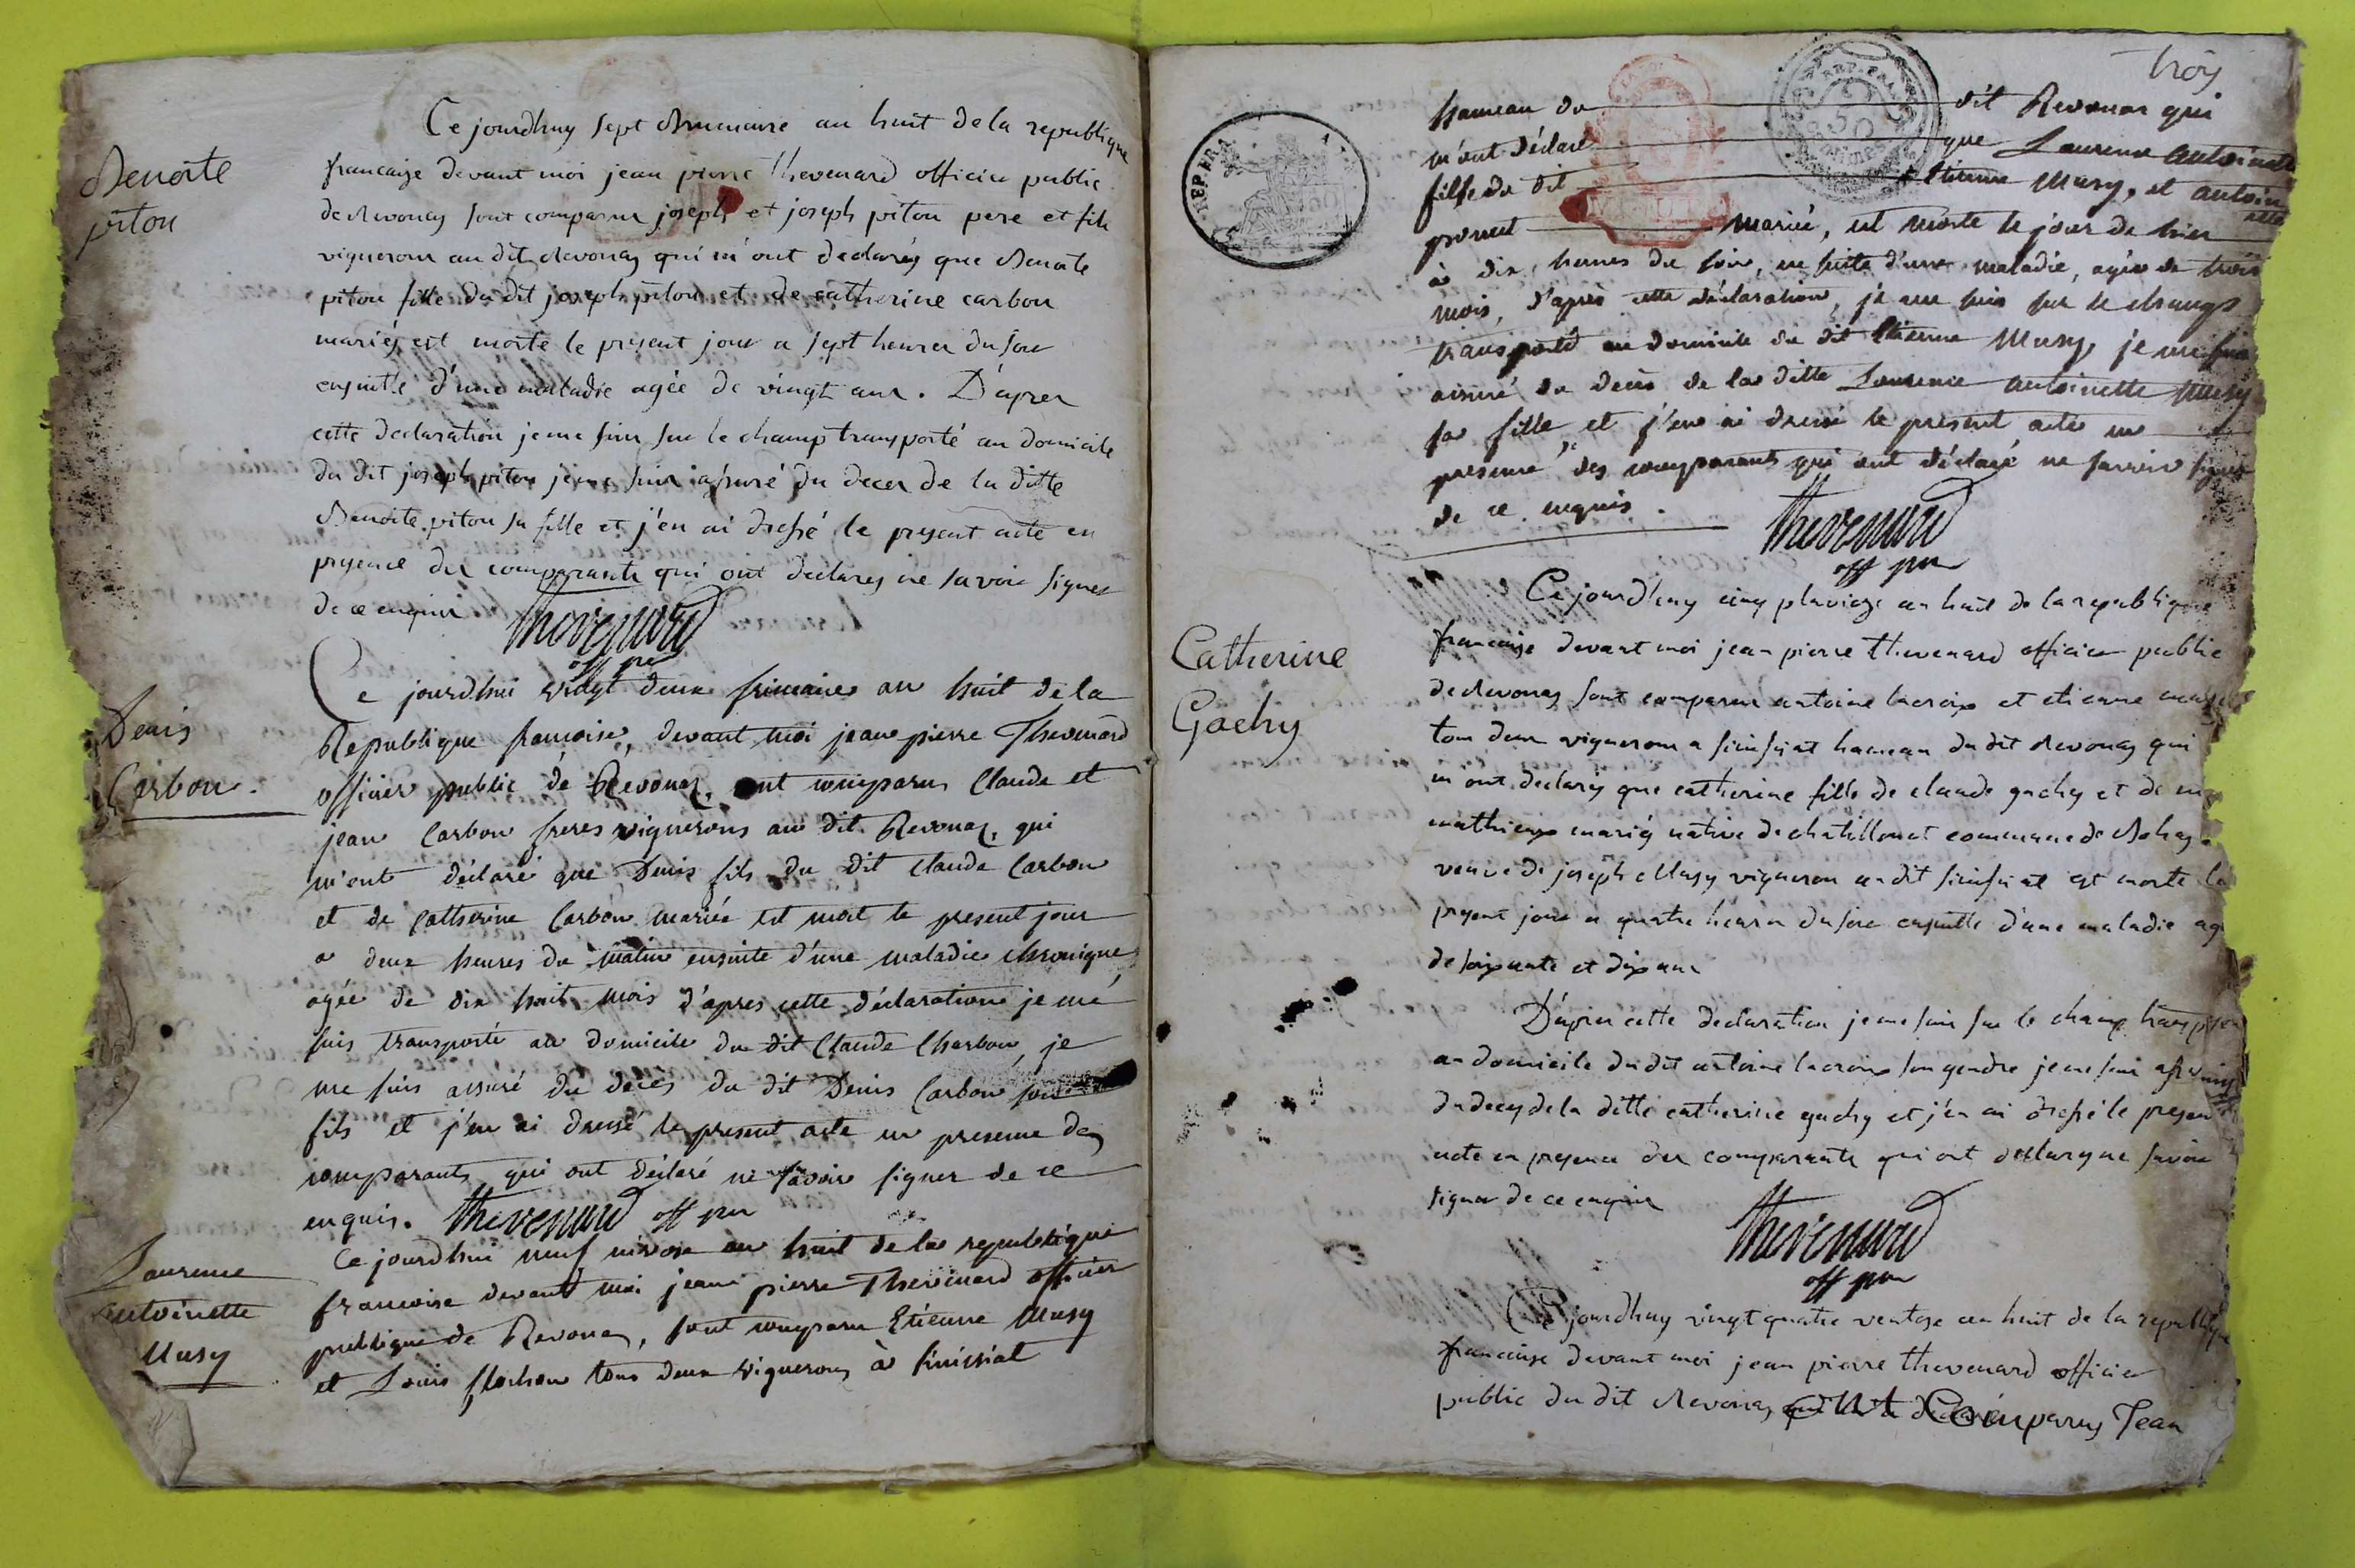 Benoite
piton
Ce jourdhuy sept Brumaire an huit de la republique
francaize devant moi jean pierre thevenard officier public
de Revonas sont comparus joseph et joseph piton pere et fils
vignerons au dit Revonas qui m'ont declarés que Benoite
piton fille du dit joseph piton et de catherine carbon
mariés est morte le present jour a sept heures du soir
ensuitte d'une maladie agée de vingt ans. D'apres
cette declaration je me suis sur le champ transporté au domicile
du dit joseph piton je me suis assuré du deces de la ditte
Benoite piton sa fille et j'en ai dressé le present acte en
presence des comparants qui ont declarés ne savoir signer
de ce enquis
thevenard
off pu
Denis
Carbon.
Ce jourd'hui vingt deux frimaire an huit de la
Republique francoise, devant moi jean pierre Thevenard
officier public de Revonas, ont comparus Claude et
jean Carbon freres vignerons au dit Revonas, qui
m'ont déclaré que Denis fils du dit Claude Carbon
et de Catherine Carbon mariée est mort le present jour
a deux heures du matin ensuite d'une maladie chronique
agée de dix huit mois d'apres cette déclaration je me
suis transporté au domicile du dit Claude Charbon, je
me suis assuré du decès du dit Denis Carbon son
fils et j'en ai dressé le present acte en presence des
comparants qui ont déclaré ne savoir signer de ce
enquis. thevenard off pu
Laurence
antoinette
Musy
Ce jourd'hui neuf nivose an huit de la republique
francoise devant moi jean pierre Thevenard officier
publique de Revonas, sont comparu Etienne Musy
et Louis flochon tous deux vignerons à simissiat
trois
REP FRA
hameau du dit Revonas qui
m'ont déclaré que Laurence antoinette
fille du dit Etienne Musy, et antoinette
mariée, est morte le jour de hier
à dix heures du soir, en suite d'une maladie, agée de trois
mois, d'après cette déclaration, je me suis sur le champs
transporté au domicile du dit Etienne Musy, je me suis
assuré du decès de la ditte Laurence antoinette Musy
sa fille, et j'en ai dressé le present acte en
presence des comparants qui ont déclaré ne savoir signer
de ce enquis.
thevenard
off pu
Catherine
Gachy
Ce jourd'huy cinq pluviose an huit de la republique
francaise devant moi jean pierre thevenard officier public
de Revonas sont comparus antoine lacroix et etienne
tou deux vignerons a simissiat hameau du dit Revonas qui
m'ont declarés que catherine fille de claude gachy et de
mathieux mariés native de chatillonet commune de Bohas
veuve de joseph Musy vigneron au dit simissiat est morte le
present jour a quatre heures du soir ensuitte d'une maladie agée
de soixante et dix ans
D'apres cette declaration je me suis sur le champ transporté
au domicile du dit antoine lacroix son gendre je me suis assuré
du deces de la ditte catherine gachy et j'en ai dressé le present
acte en presence des comparants qui ont declarés ne savoir
signer de ce enquis
thevenard
off pu
Ce jourdhuy vingt quatre ventose an huit de la republique
francaise devant moi jean pierre thevenard officier
public du dit Revonas ont Comparus Jean